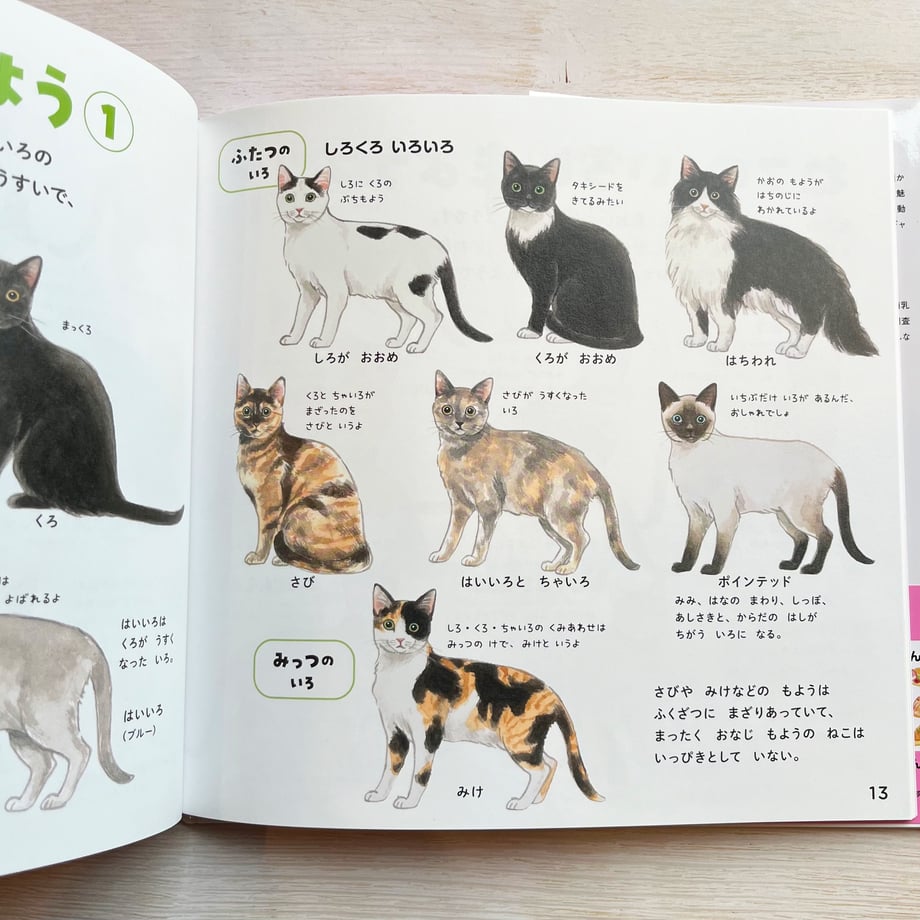 よう ①
いろの
うすいで、
まっくろ
くろ
は
よばれるよ
はいいろは
くろが うすく
なった いろ。
はいいろ
(ブルー)
ふたつの
いろ
しろくろ いろいろ
しろに くろの
ぶちもよう
しろが おおめ
タキシードを
きてるみたい
くろが おおめ
かおの もようが
はちのじに
わかれているよ
はちわれ
くろと ちゃいろが
まざったのを
さびと いうよ
さび
さびが うすくなった
いろ
はいいろと ちゃいろ
いちぶだけ いろが あるんだ、
おしゃれでしょ
ポインテッド
みみ、はなの まわり、しっぽ、
あしさきと、からだの はしが
ちがう いろに なる。
みっつの
いろ
しろ・くろ・ちゃいろの くみあわせは
みっつの けで、みけと いうよ
みけ
さびや みけなどの もようは
ふくざつに まざりあっていて、
まったく おなじ もようの ねこは
いっぴきとして いない。
13
か
魅
動